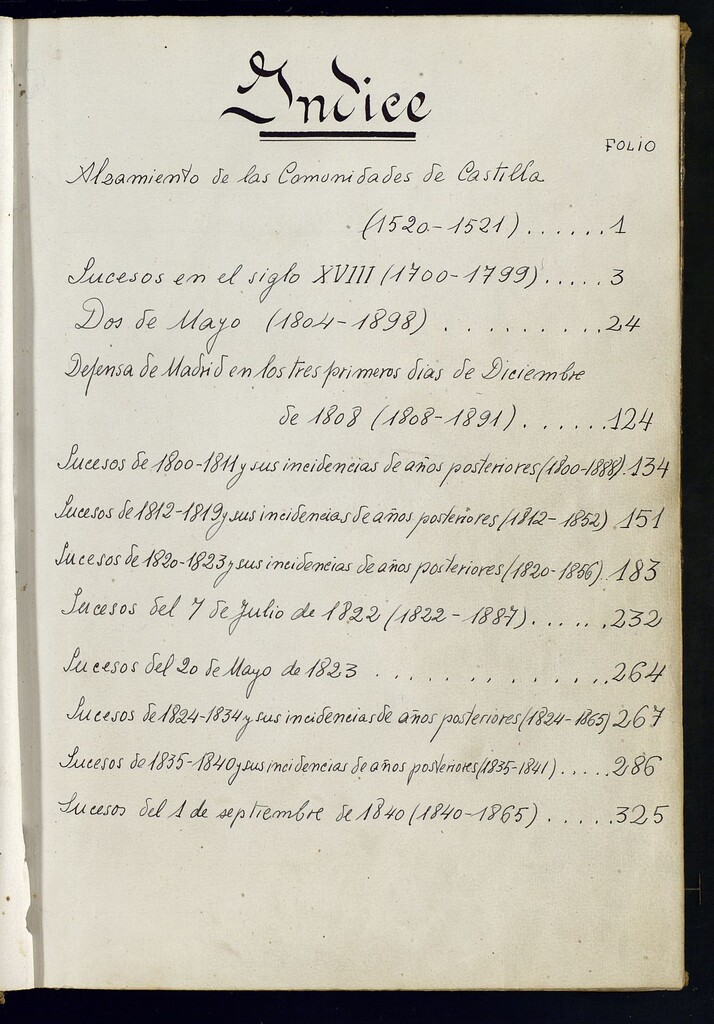 Indice
FOLIO
Alzamiento de las Comunidades de Castilla
(1520-1521) ...... 1
Sucesos en el siglo XVIII (1700-1799) ..... 3
Dos de Mayo (1804-1898) ......... 24
Defensa de Madrid en los tres primeros dias de Diciembre
de 1808 (1808-1891) ...... 124
Sucesos de 1800-1811 y sus incidencias de años posteriores (1800-1888). 134
Sucesos de 1812-1819 y sus incidencias de años posteriores (1812-1852) 151
Sucesos de 1820-1823 y sus incidencias de años posteriores (1820-1856). 183
Sucesos del 7 de Julio de 1822 (1822-1887) ..... 232
Sucesos del 20 de Mayo de 1823 ............. 264
Sucesos de 1824-1834 y sus incidencias de años posteriores (1824-1865) 267
Sucesos de 1835-1840 y sus incidencias de años posteriores (1835-1841) ..... 286
Sucesos del 1 de septiembre de 1840 (1840-1865) ..... 325